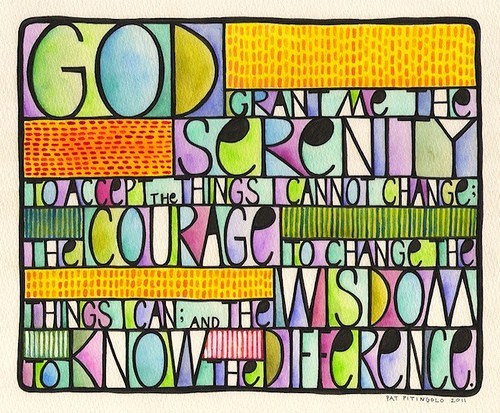 GOD
GRANT Me THe
SeReNITY
TO ACCePT THe THINGS I CANNOT CHANGe;
THe COURAGe TO CHANGe THe
THINGS I CAN; AND THe WISDOM
TO KNOW THe DIFFeReNCe.
PAT PITINGOLO 2011